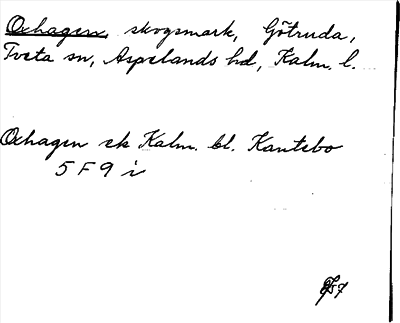 Oxhagen, skogsmark, Götruda,
Tveta sn, Aspelands hd, Kalm. l.
Oxhagen ek Kalm. bl. Kantebo
5 F 9 i